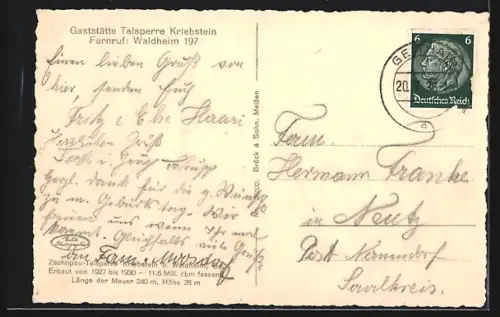 Gaststätte Talsperre Kriebstein
Fernruf: Waldheim 197
Einen lieben Gruß von
hier, senden Euch
Fritz
Herzlichen Gruß
dank für die g. Wünsche
zu m. Geburtstag. Wir
freuen uns wenn Ihr mal
kommt. Gleichfalls viele Grüße
an Fam.
Zschopau-Talsperre Kriebstein b. Waldheim,
Erbaut von 1927 bis 1930 — 11,6 Mill. cbm fassend
Länge der Mauer 240 m, Höhe 28 m
Brück & Sohn, Meißen
6 6
Deutsches Reich
20.
a
Fam.
Hermann Franke
in Neutz
Post Nauendorf
Saalkreis.